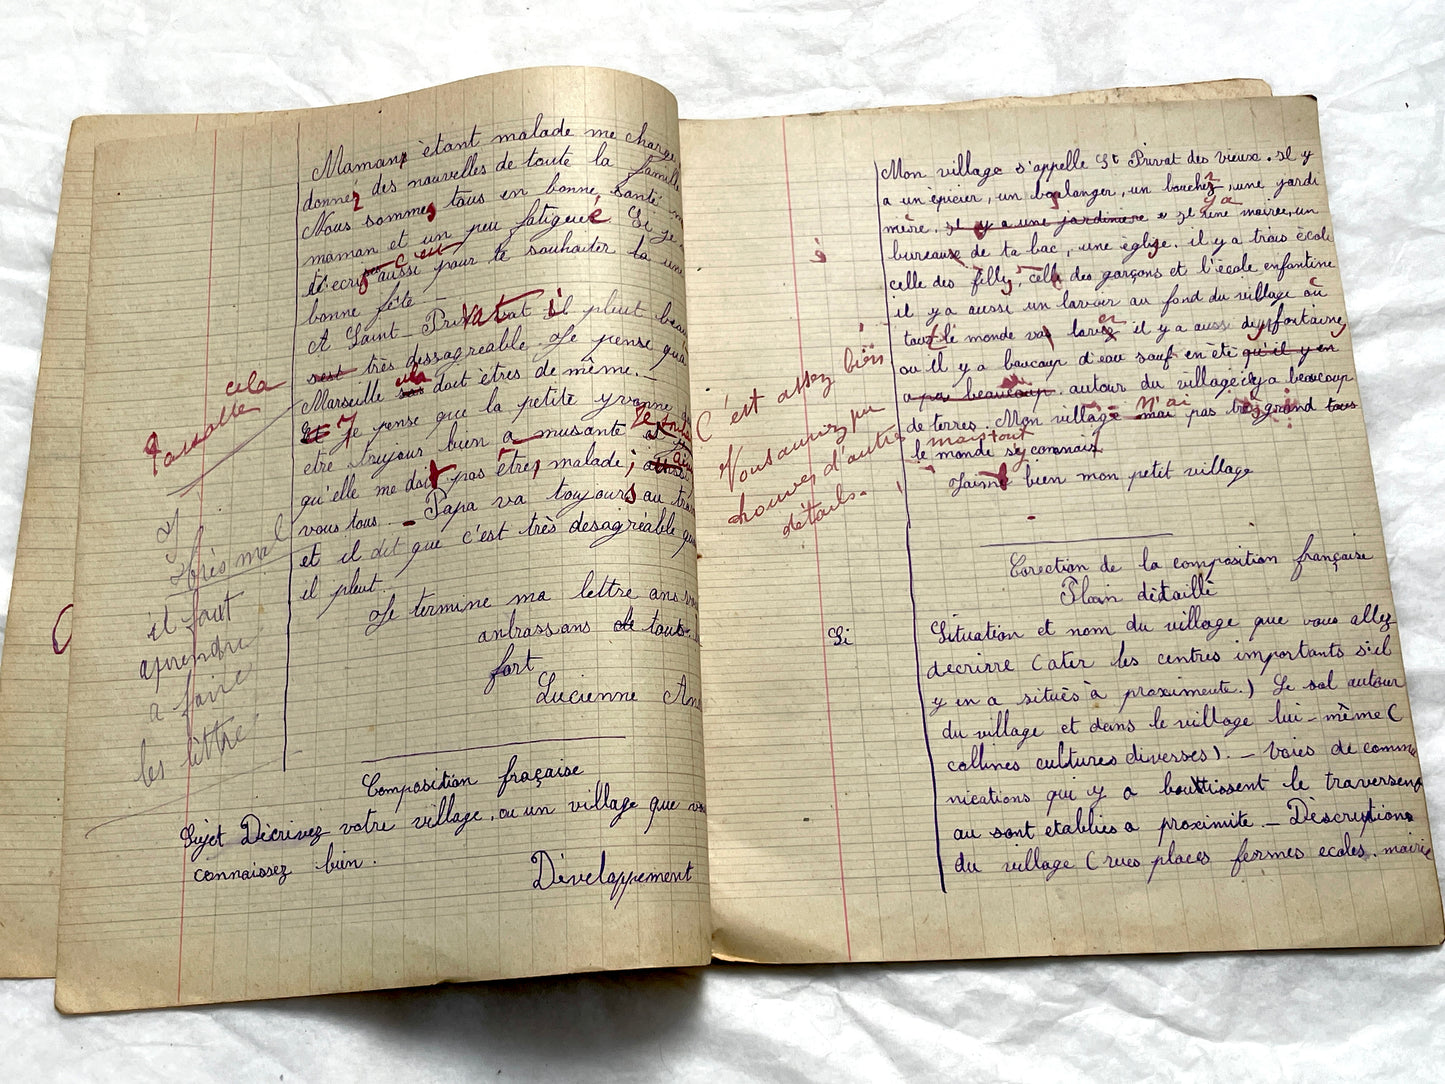 Maman étant malade me charge
donnez des nouvelles de toute la famille
Nous sommes tous en bonne santé
maman et un peu fatigueé Si je
t'ecris aussi pour te souhaiter ta
bonne fête
A Saint-Privat il pleut beau
sest très dessagreable Je pense qua
cela
Marseille cela doit êtres de même.
et je pense que la petite yvonne
etre toujour bien a musante
qu'elle me doit pas être malade;
vous tous. - Papa va toujours au tra
et il dit que c'est très desagréable qu
il pleut.
Je termine ma lettre ans
anbrassans de touts
fort
Lucienne
très mal
il faut
aprendre
a faire
les lettre
Composition fraçaise
Sujet Décrivez votre village, ou un village que vo
connaissez bien.
Développement
Mon village s'appelle St Privat des vieux. Il y
a un épicier, un boulanger, un boucher, une jardi
mère. Il y a une jardiniere e Il y a une mairee, un
bureaux de ta bac, une églige. il y a trois école
celle des filles, celle des garçons et l'école enfantine
il y a aussi un lavoir au fond du village où
tout le monde va laver il y a aussi des fontaines
ou il y a baucoup d'eau sauf en été qu'il y en
a pas beaucoup. autour du village il y a beaucoup
de terres. Mon village n'ai pas très grand tous
mais tout
le monde s'y connais
J'aime bien mon petit village
C'est assez bien
Vous auriez pu
trouver d'autres
détails.
Corection de la composition française
Plain détaillé
Si
Situation et nom du village que vous allez
decrirre (ater les centres importants s'il
y en a situés à proximeute.) Le sol autour
du village et dans le village lui-même (
collines cultures diverses). - Voies de comm
nications qui y a bouttissent le traversent
au sont etablies a proximite. - Déscruptions
du village (rues places fermes ecoles. mairie